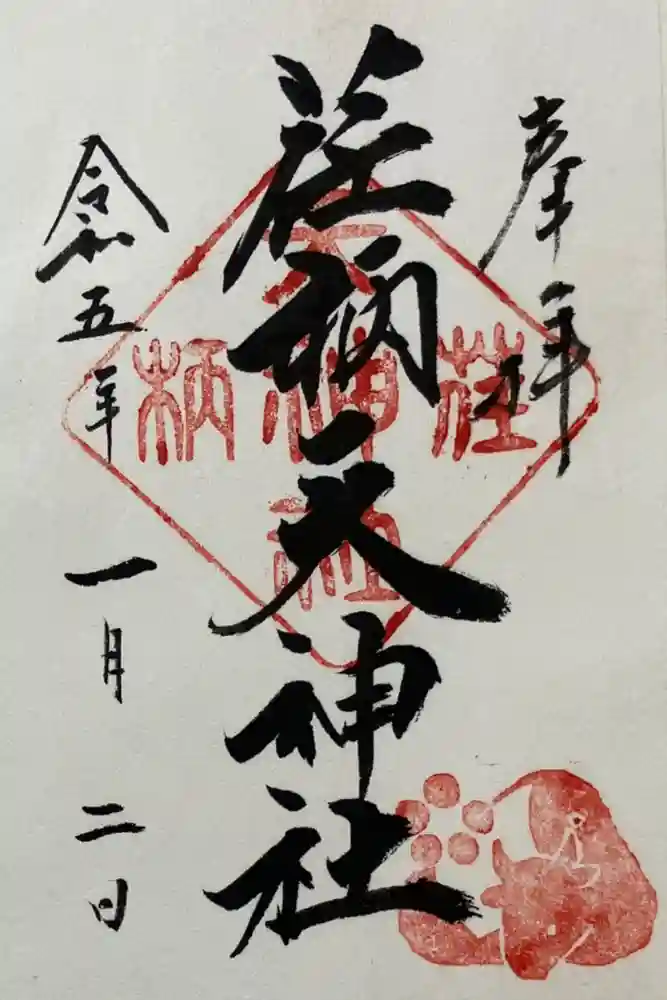 奉拝
荏柄天神社
令和五年 一月 二日
荏
天神社
柄